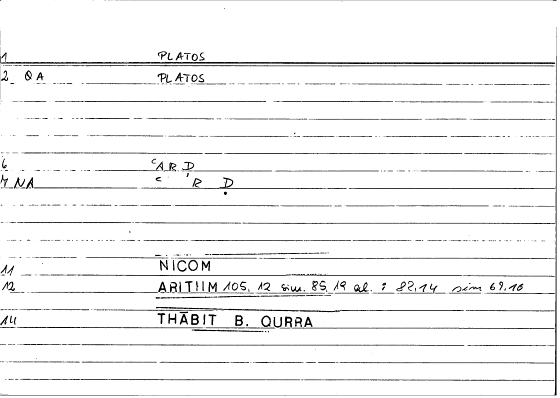 1 PLATOS
2 QA PLATOS
6 ʿARḌ
7 NA ʿ R Ḍ
11 NICOM
12 ARITIIM 105, 12 sim. 85, 19 al. : 82.14 sim 69.10
14 THĀBIT B. QURRA